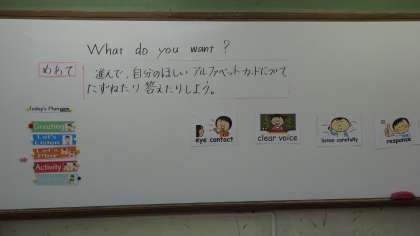 What do you want?
めあて
進んで、自分のほしいアルファベットカードについて
たずねたり答えたりしよう。
Today's Plan
Greeting
Let's Listen
Let's Play
Activity
eye contact
clear voice
listen carefully
response